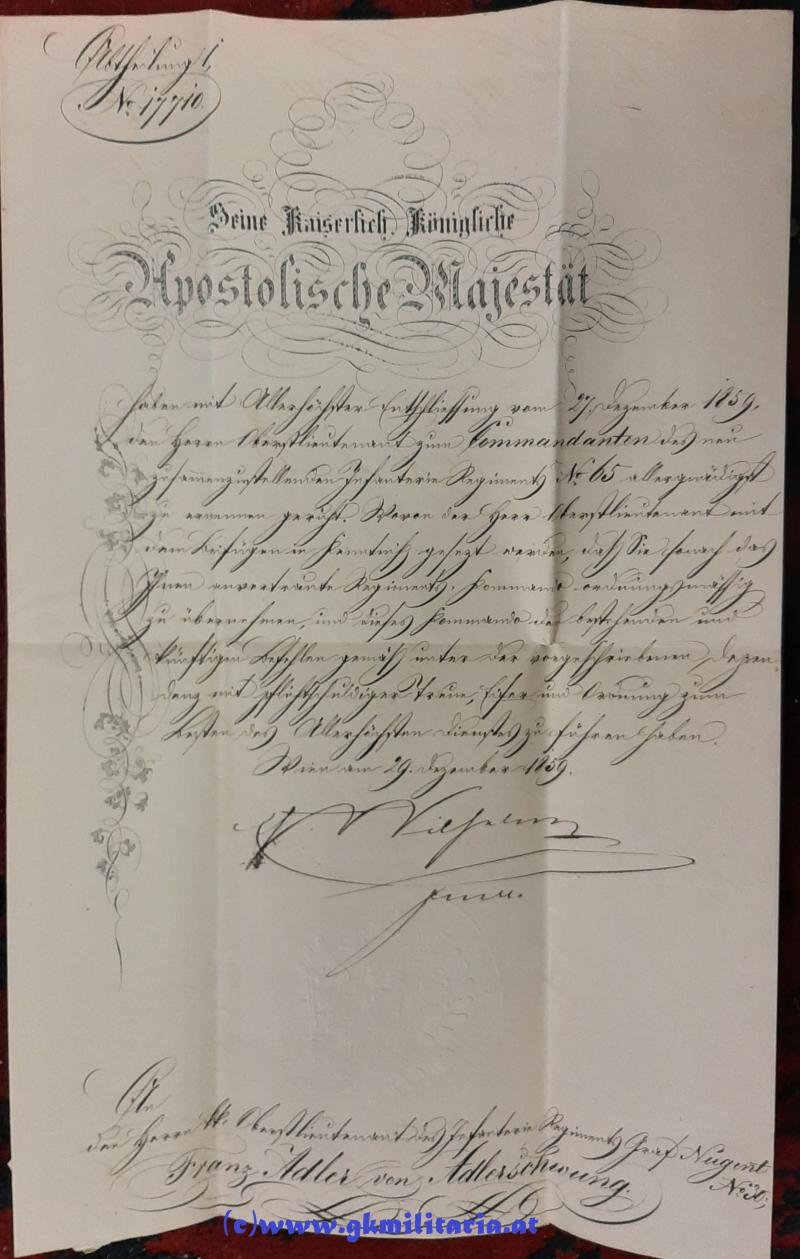 Abtheilung 1,
No. 17710.
Seine Kaiserlich, Königliche
Apostolische Majestät
haben mit Allerhöchster Entschliessung vom 27. Dezember 1859.
den Herrn Oberstlieutenant zum Commandanten des neu
zusammenzustellenden Infanterie Regiments No 65 allergnädigst
zu ernennen geruht. Wovon der Herr Oberstlieutenant mit
dem Beifügen in Kenntniß gesezt werden, daß Sie sonach das
Ihnen anvertraute Regiments-Kommando ordnungsmässig
zu übernehmen, und dieses Kommando den bestehenden und
künftigen Befehlen gemäß unter der vorgeschriebenen Depen-
denz mit pflichtschuldiger Treue, Eifer und Ordnung zum
Besten des Allerhöchsten Dienstes zu führen haben.
Wien am 29. Dezember 1859.
Wilhelm
An
den Herrn kk. Oberstlieutenant des Infanterie Regiments Graf Nugent
No 30,
Franz Adler von Adlerschwung.
(c)www.gkmilitaria.at